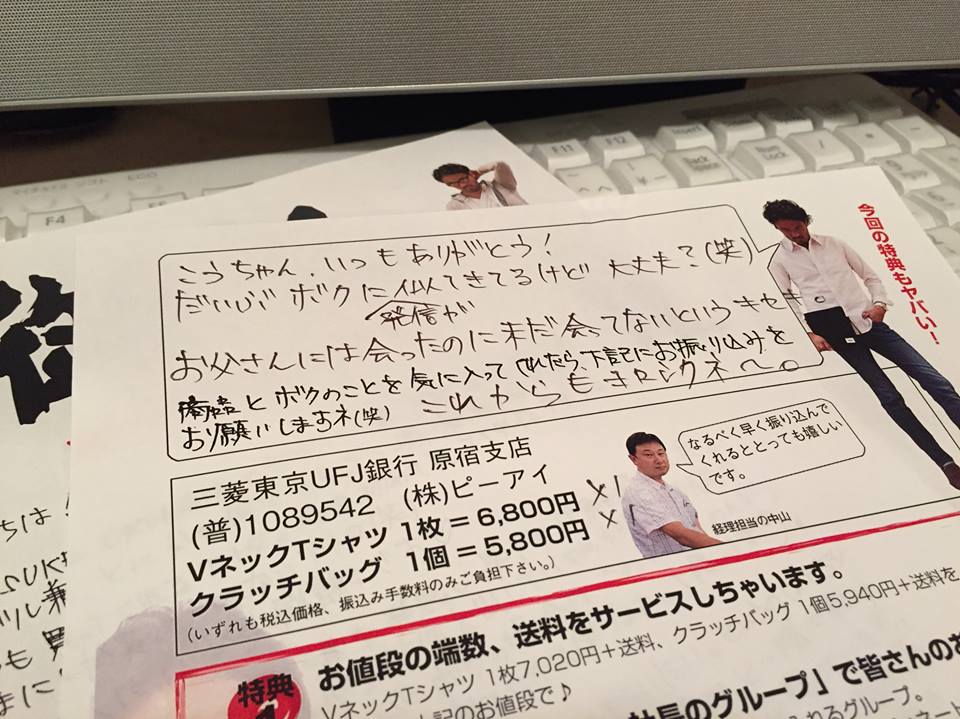 F4
F11
F12
Insert
Num Lock
こうちゃん、いつもありがとう!
だいぶボクに似てきてるけど 大丈夫?(笑)
発信が
お父さんには会ったのに未だ会ってないというキセキ。
とボクのことを気に入ってくれたら、下記にお振り込みを
お願いしますネ(笑) これからもヨロシクネ〜。
今回の特典もヤバい!
三菱東京UFJ銀行 原宿支店
(普)1089542 (株)ピーアイ
VネックTシャツ 1枚=6,800円 ×1
クラッチバッグ 1個=5,800円 ×1
(いずれも税込価格、振込み手数料のみご負担下さい。)
なるべく早く振り込んで
くれるととっても嬉しい
です。
経理担当の中山
特典
お値段の端数、送料をサービスしちゃいます。
VネックTシャツ 1枚7,020円+送料、クラッチバッグ 1個5,940円+送料を
上記のお値段で♪
社長のグループ」で皆さんのお
れるグループ。